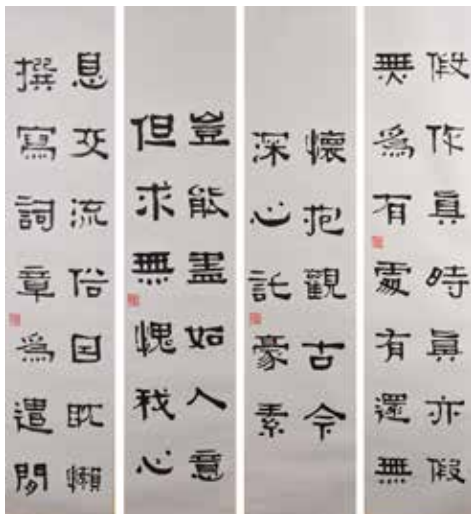 假作真時真亦假
無爲有處有還無
懷抱觀古今
深心託豪素
豈能盡如人意
但求無愧我心
息交流俗因懶
撰寫詞章爲遣閒